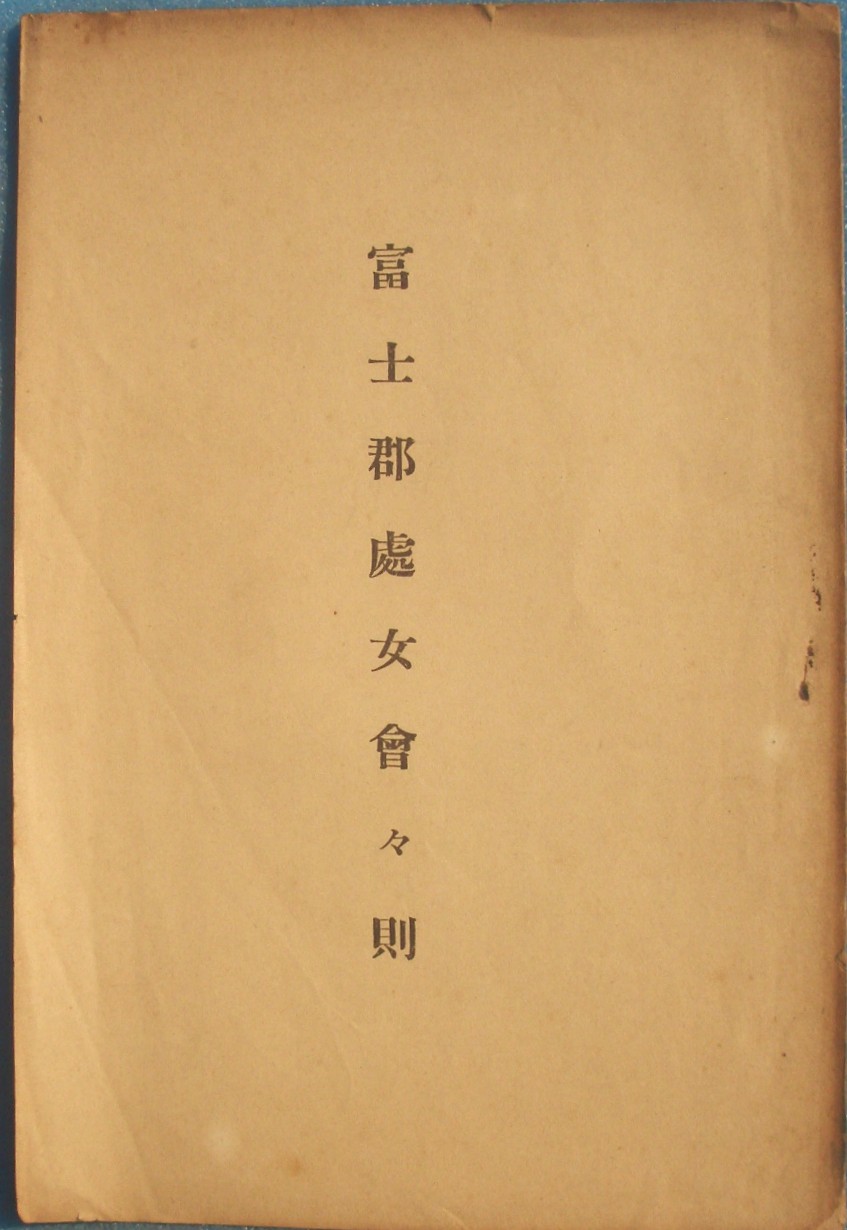 富士郡處女會々則